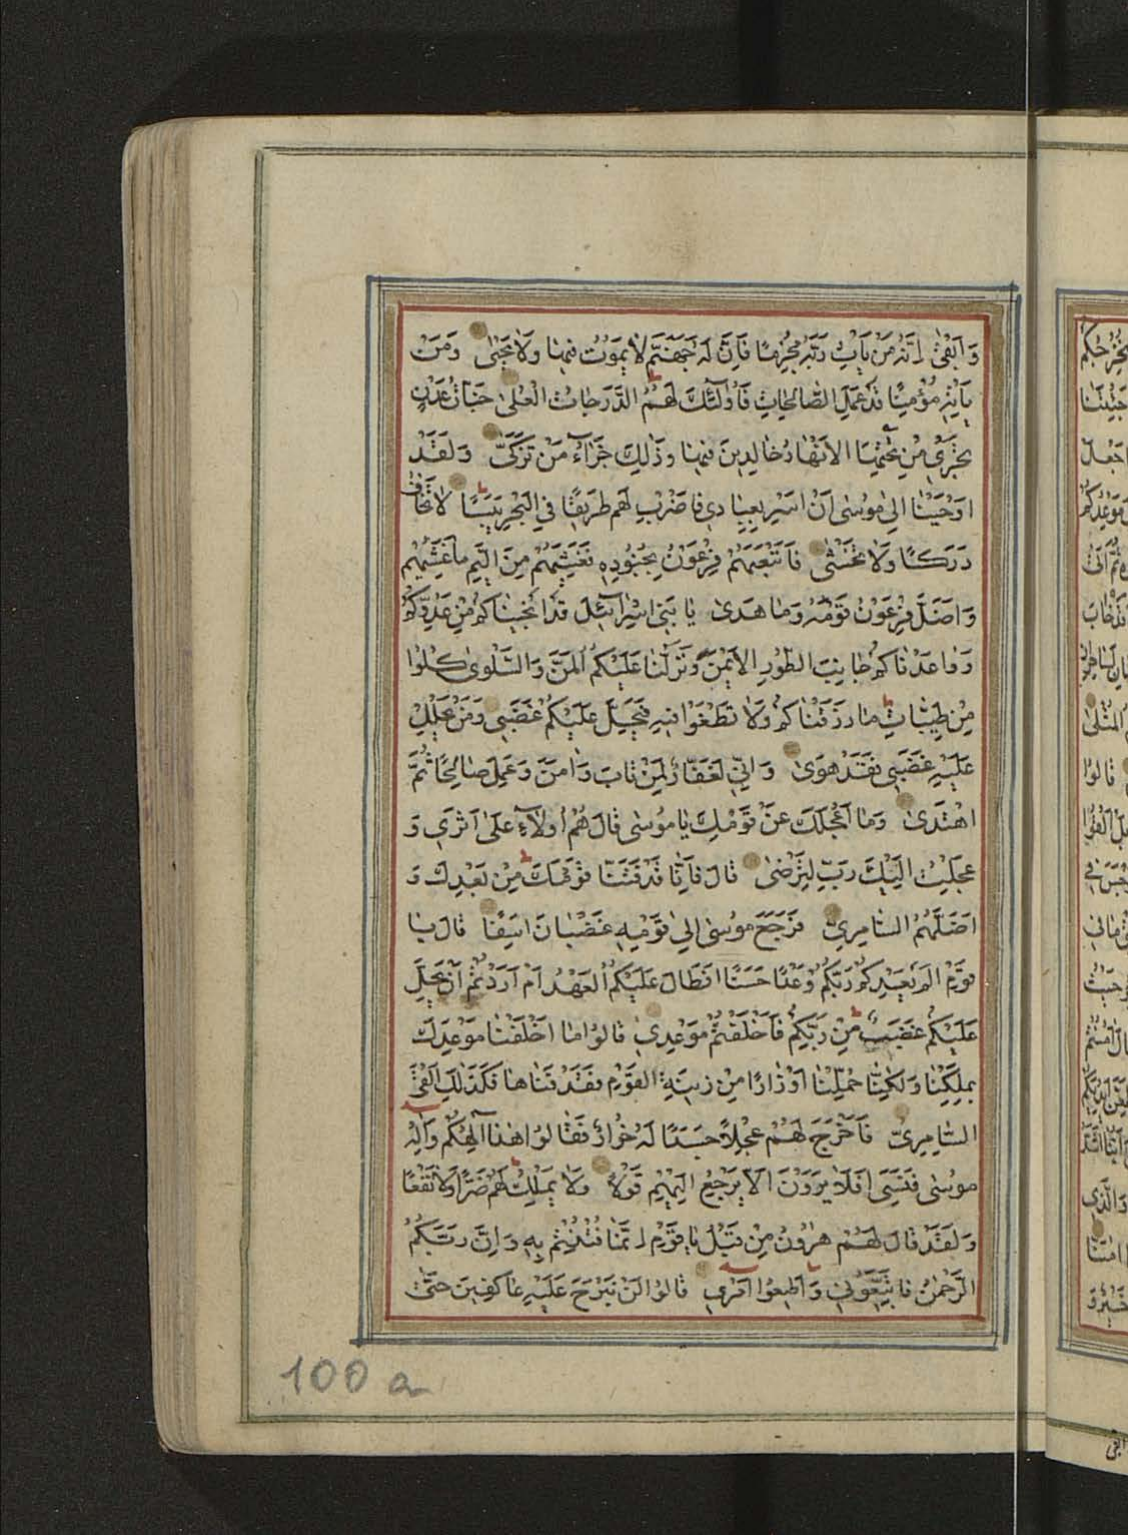 وَ اَبْقٰى اِنَّهُ مَنْ يَاْتِ رَبَّهُ مُجْرِمًا فَاِنَّ لَهُ جَهَنَّمَ لَا يَمُوْتُ فِيهَا وَلَا يَحْيٰى وَمَنْ
يَاْتِهِ مُؤْمِنًا قَدْ عَمِلَ الصَّالِحَاتِ فَاُولٰئِكَ لَهُمُ الدَّرَجَاتُ الْعُلٰى جَنَّاتُ عَدْنٍ
تَجْرِي مِنْ تَحْتِهَا الْاَنْهَارُ خَالِدِينَ فِيهَا وَذٰلِكَ جَزَآءُ مَنْ تَزَكّٰى وَلَقَدْ
اَوْحَيْنَا اِلٰى مُوسٰى اَنْ اَسْرِ بِعِبَادِي فَاضْرِبْ لَهُمْ طَرِيقًا فِي الْبَحْرِ يَبَسًا لَا تَخَافُ
دَرَكًا وَلَا تَخْشٰى فَاَتْبَعَهُمْ فِرْعَوْنُ بِجُنُودِهِ فَغَشِيَهُمْ مِنَ الْيَمِّ مَا غَشِيَهُمْ
وَ اَضَلَّ فِرْعَوْنُ قَوْمَهُ وَمَا هَدٰى يَا بَنِي اِسْرَآئِلَ قَدْ اَنْجَيْنَاكُمْ مِنْ عَدُوِّكُمْ
وَوَاعَدْنَاكُمْ جَانِبَ الطُّورِ الْاَيْمَنَ وَنَزَّلْنَا عَلَيْكُمُ الْمَنَّ وَالسَّلْوٰى كُلُوا
مِنْ طَيِّبَاتِ مَا رَزَقْنَاكُمْ وَلَا تَطْغَوْا فِيهِ فَيَحِلَّ عَلَيْكُمْ غَضَبِي وَمَنْ يَحْلِلْ
عَلَيْهِ غَضَبِي فَقَدْ هَوٰى وَ اِنِّي لَغَفَّارٌ لِمَنْ تَابَ وَاٰمَنَ وَعَمِلَ صَالِحًا ثُمَّ
اهْتَدٰى وَمَا اَعْجَلَكَ عَنْ قَوْمِكَ يَا مُوسٰى قَالَ هُمْ اُولَآءِ عَلٰى اَثَرِي وَ
عَجِلْتُ اِلَيْكَ رَبِّ لِتَرْضٰى قَالَ فَاِنَّا قَدْ فَتَنَّا قَوْمَكَ مِنْ بَعْدِكَ وَ
اَضَلَّهُمُ السَّامِرِيُّ فَرَجَعَ مُوسٰى اِلٰى قَوْمِهِ غَضْبَانَ اَسِفًا قَالَ يَا
قَوْمِ اَلَمْ يَعِدْكُمْ رَبُّكُمْ وَعْدًا حَسَنًا اَفَطَالَ عَلَيْكُمُ الْعَهْدُ اَمْ اَرَدْتُمْ اَنْ يَحِلَّ
عَلَيْكُمْ غَضَبٌ مِنْ رَبِّكُمْ فَاَخْلَفْتُمْ مَوْعِدِي قَالُوا مَا اَخْلَفْنَا مَوْعِدَكَ
بِمَلْكِنَا وَلٰكِنَّا حُمِّلْنَا اَوْزَارًا مِنْ زِينَةِ الْقَوْمِ فَقَذَفْنَاهَا فَكَذٰلِكَ اَلْقَى
السَّامِرِيُّ فَاَخْرَجَ لَهُمْ عِجْلًا جَسَدًا لَهُ خُوَارٌ فَقَالُوا هٰذَا اِلٰهُكُمْ وَاِلٰهُ
مُوسٰى فَنَسِيَ اَفَلَا يَرَوْنَ اَلَّا يَرْجِعُ اِلَيْهِمْ قَوْلًا وَلَا يَمْلِكُ لَهُمْ ضَرًّا وَلَا نَفْعًا
وَلَقَدْ قَالَ لَهُمْ هٰرُونُ مِنْ قَبْلُ يَا قَوْمِ اِنَّمَا فُتِنْتُمْ بِهِ وَاِنَّ رَبَّكُمُ
الرَّحْمٰنُ فَاتَّبِعُونِي وَاَطِيعُوا اَمْرِي قَالُوا لَنْ نَبْرَحَ عَلَيْهِ عَاكِفِينَ حَتّٰى
100 a